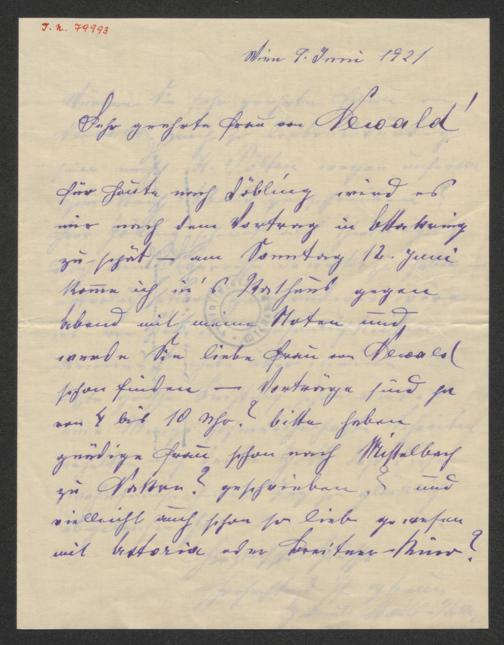 I. N. 79993
Wien 9. Juni 1921
Sehr geehrte Frau von Newald!
für heute nach Döbling wird es
mir nach dem Vortrag in Ottakring
zu spät — am Sonntag 12. Juni
komme ich in's Rathaus gegen
Abend mit meine Noten und
werde Sie liebe Frau von Newald
schon finden — Vorträge sind ja
von 4 bis 10 Uhr? bitte haben
gnädige Frau schon nach Mistelbach
zu ? geschrieben? und
vielleicht auch schon so lieb gewesen
mit Astoria oder Breitner-Kino?